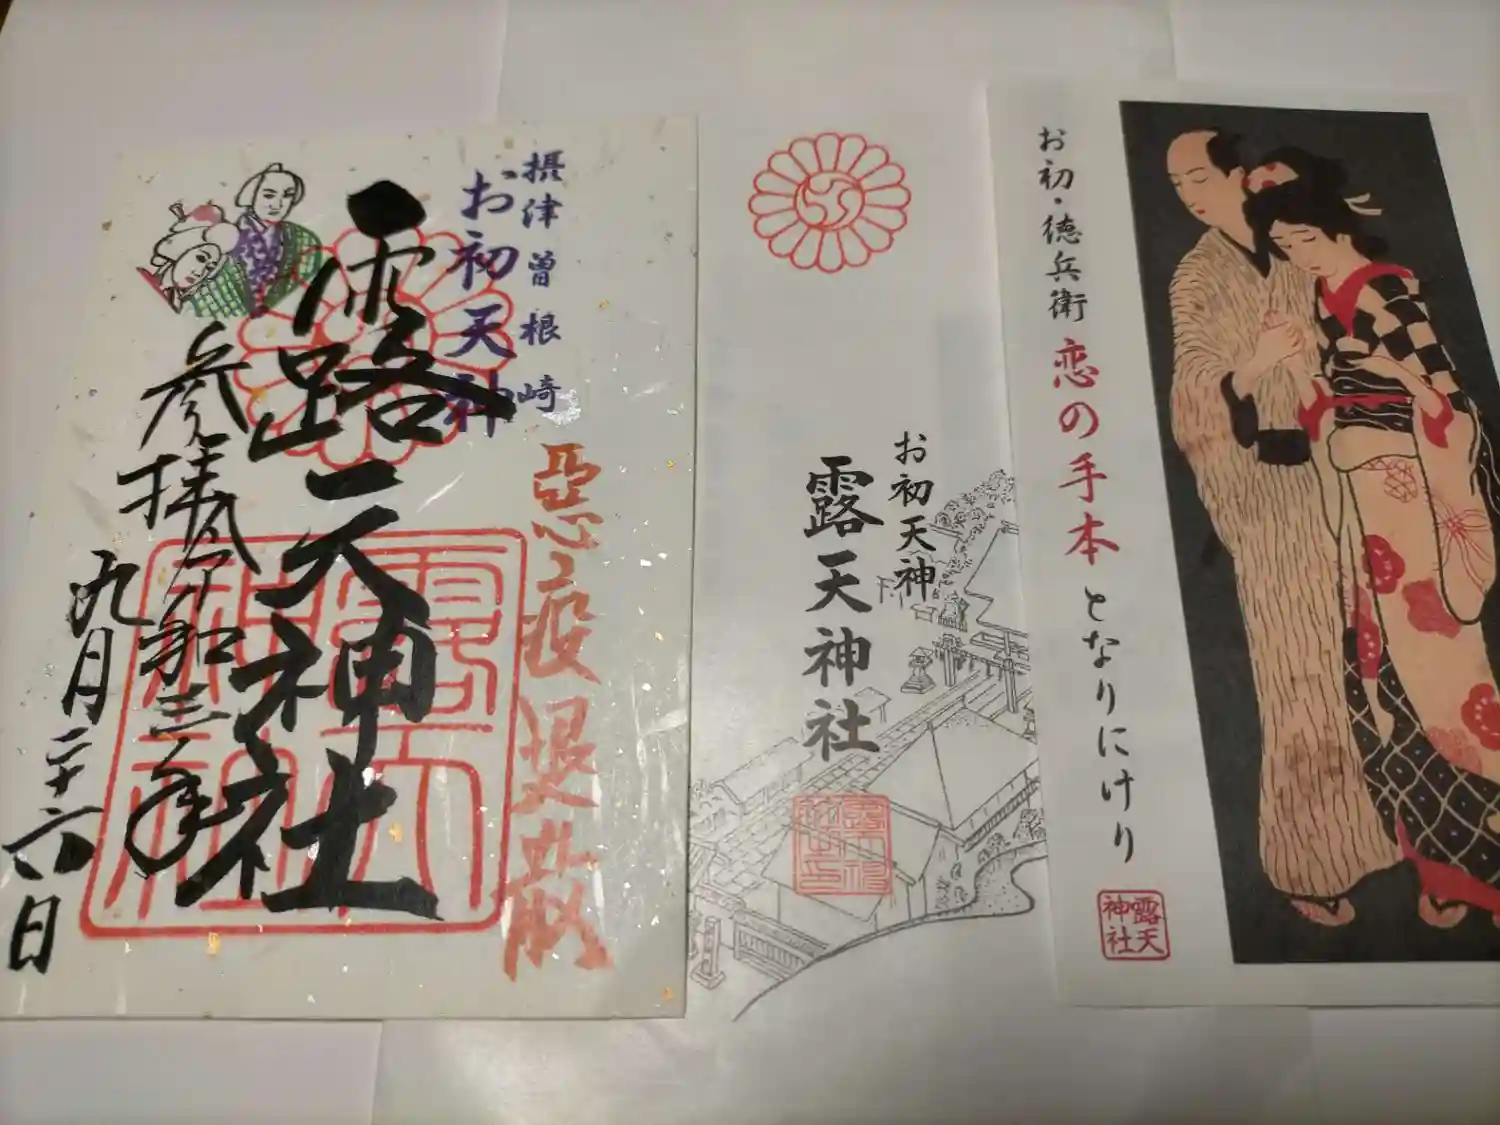 摂津曽根崎
お初天神
悪疫退散
露天神社
参拝令和三年
九月二十六日
お初天神
露天神社
お初・徳兵衛 恋の手本 となりにけり
露天
神社